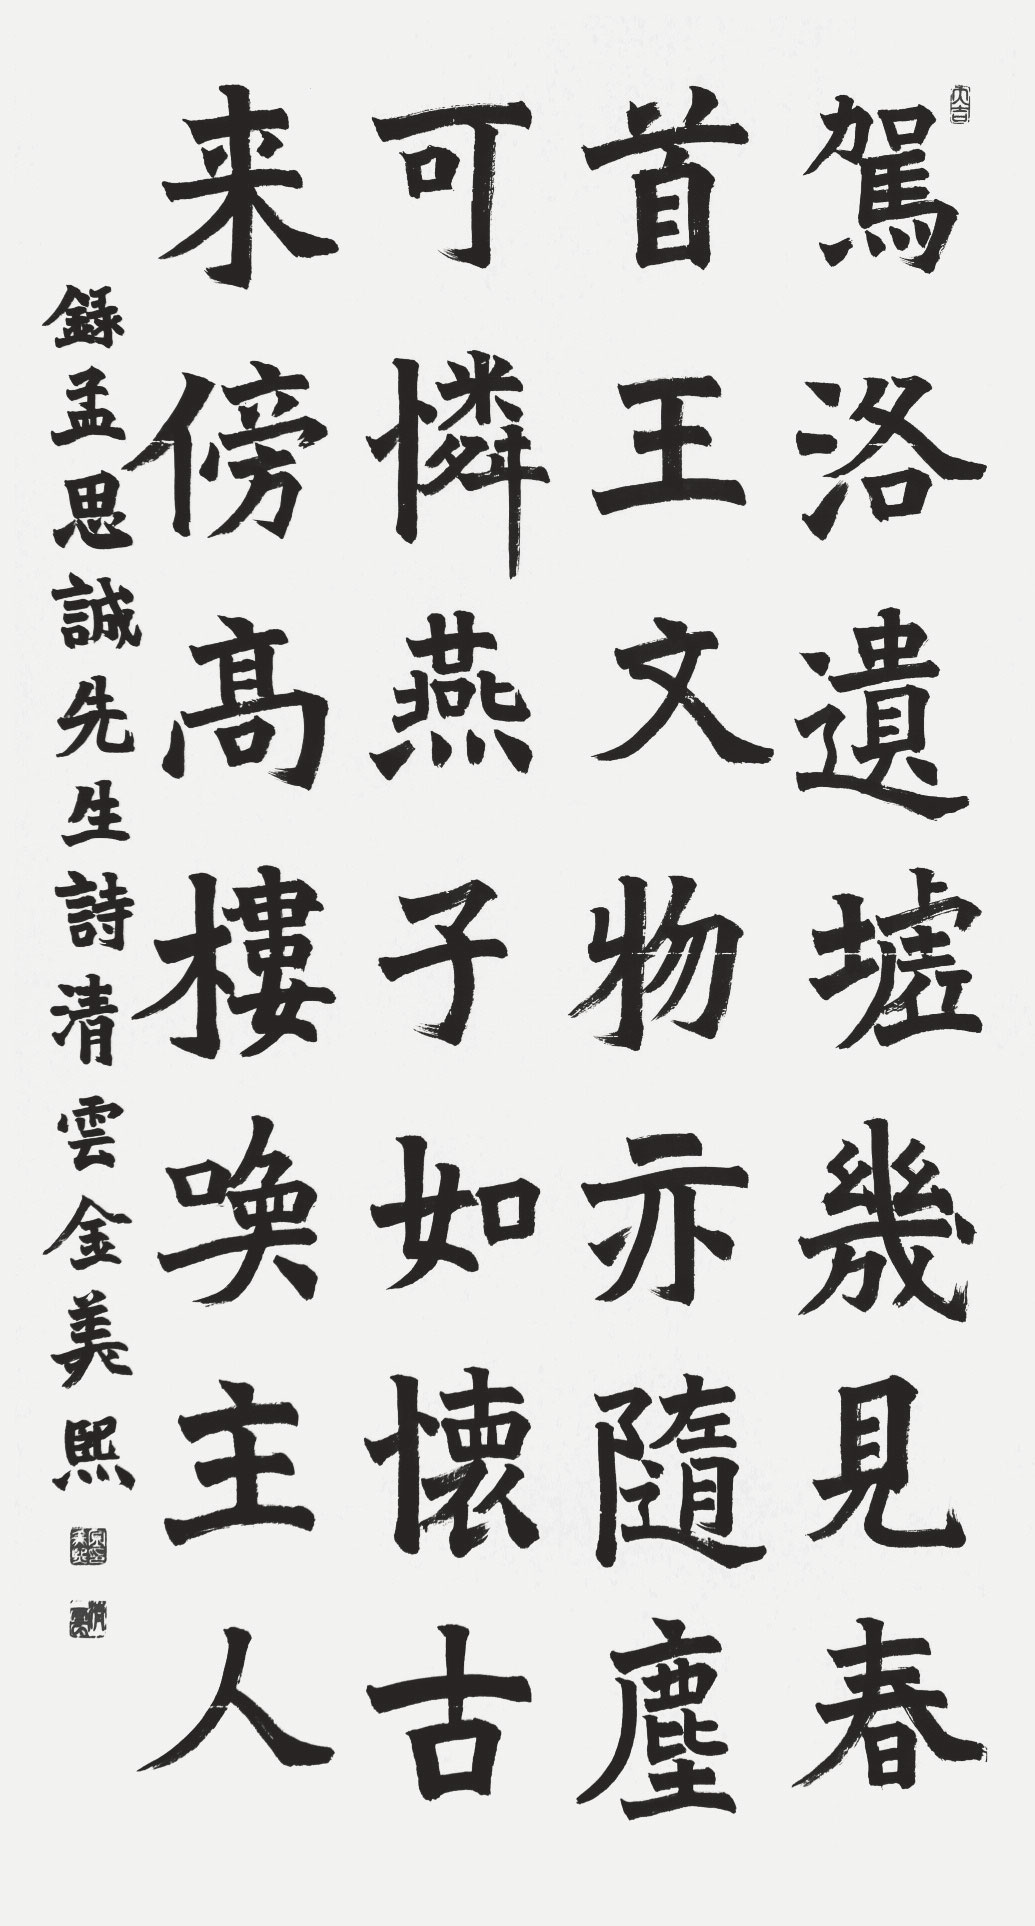 大吉
駕洛遺墟幾見春
首王文物亦隨塵
可憐燕子如懷古
来傍高樓喚主人
錄孟思誠先生詩清雲金美熙